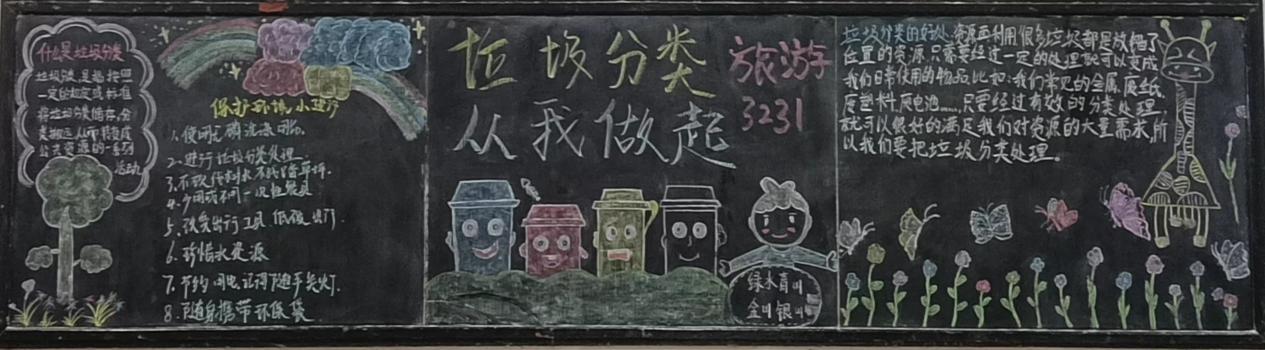 什么是垃圾分类
垃圾分类是指按照
一定的规定或标准
将垃圾分类储存、分
类搬运从而转变成
公共资源的一系列
活动
保护环境,小进行
1.使用无磷洗涤用品.
2.进行垃圾分类处理.
4.少用或不用一次性餐具
5.改变出行工具,低碳出行.
6.珍惜水资源
7.节约用电,记得随手关灯.
8.随身携带环保袋
垃圾分类
从我做起
旅游
3231
绿水青山
金山银山
垃圾分类的好处:资源再利用很多垃圾都是放错了
位置的资源,只需要经过一定的处理就可以变成
我们日常使用的物品,比如:我们常见的金属、废纸、
废塑料、废电池……只要经过有效的分类处理,
就可以很好的满足我们对资源的大量需求,所
以我们要把垃圾分类处理。